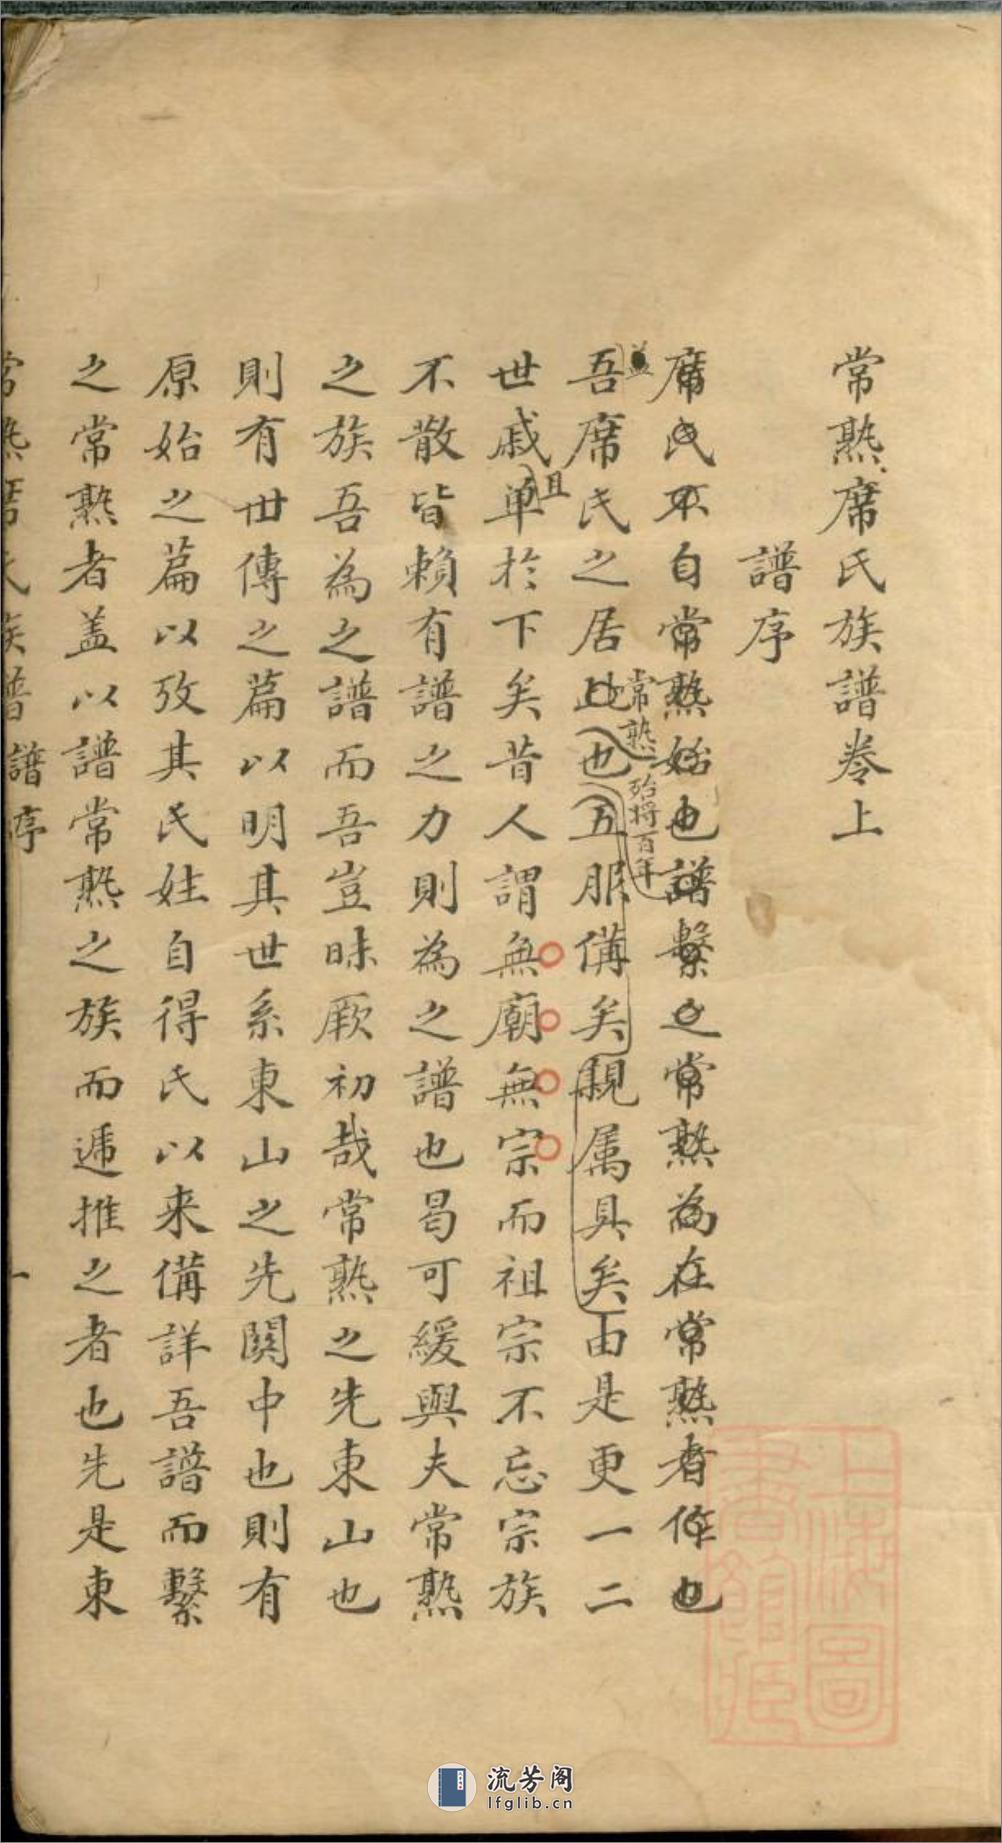 常熟席氏族譜卷上
譜序
席氏不自常熟始也譜繫之常熟為在常熟者作也
蓋
常熟
殆將百年
吾席氏之居此也五服備矣親属具矣由是更一二
且
世戚单於下矣昔人謂無廟無宗而祖宗不忘宗族
不散皆賴有譜之力則為之譜也曷可緩與夫常熟
之族吾為之譜而吾豈昧厥初哉常熟之先東山也
則有世傳之篇以明其世系東山之先関中也則有
原始之篇以攷其氏姓自得氏以来備詳吾譜而繫
之常熟者盖以譜常熟之族而遞推之者也先是東
常熟席氏族譜 譜序 一
上海圖書館藏
流芳阁
lfglib.cn